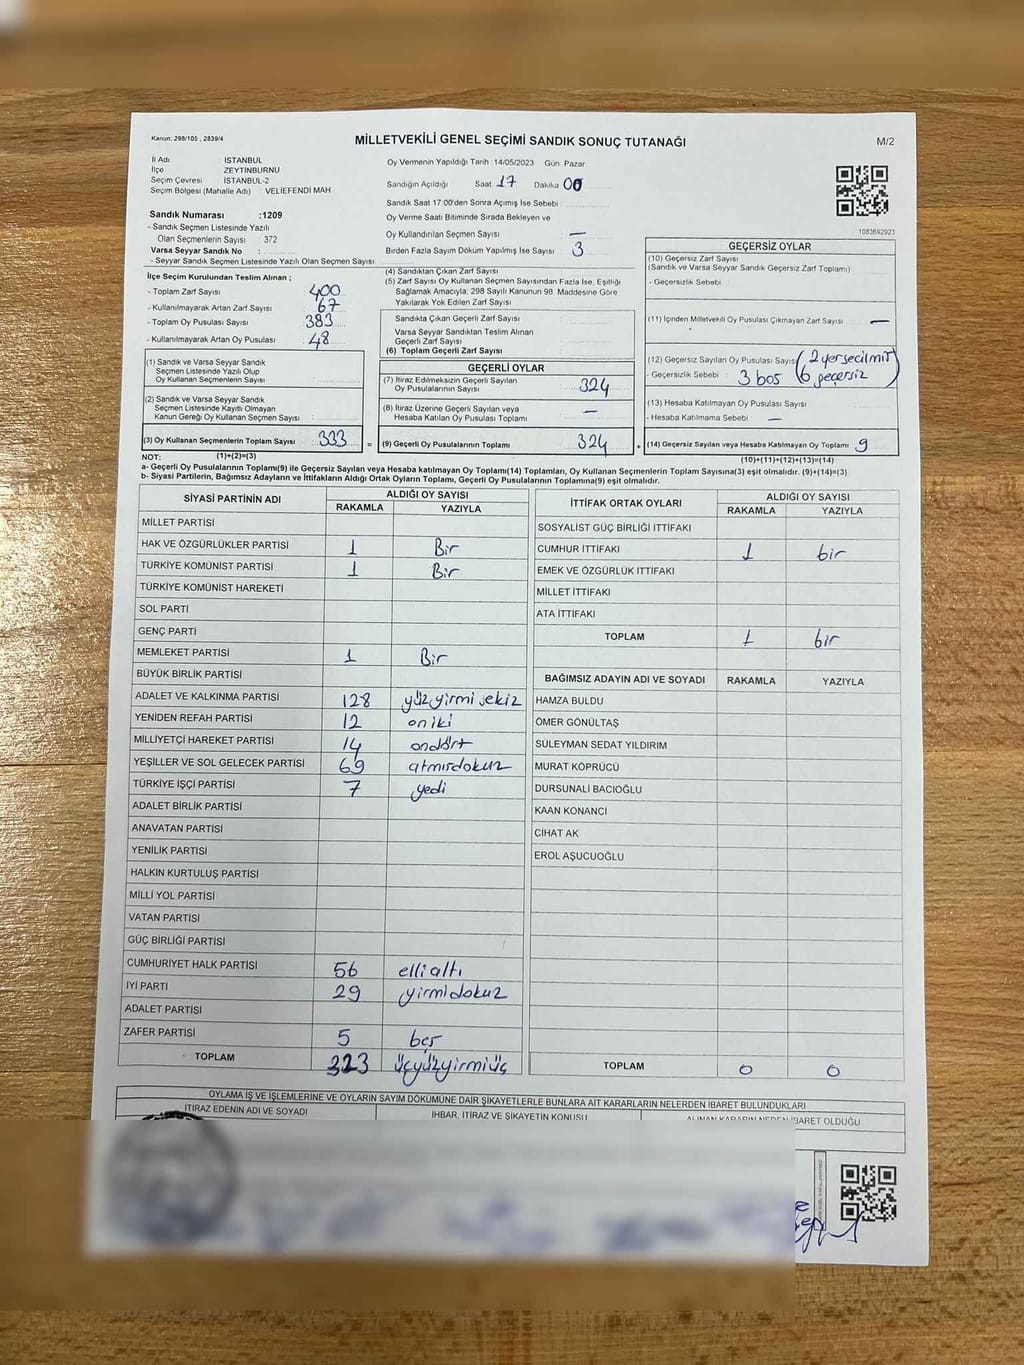 Kanun: 298/105 , 2839/4
MİLLETVEKİLİ GENEL SEÇİMİ SANDIK SONUÇ TUTANAĞI
M/2
İl Adı : İSTANBUL
İlçe : ZEYTİNBURNU
Seçim Çevresi : İSTANBUL-2
Seçim Bölgesi (Mahalle Adı) : VELİEFENDİ MAH
Sandık Numarası :1209
- Sandık Seçmen Listesinde Yazılı
Olan Seçmenlerin Sayısı : 372
Varsa Seyyar Sandık No :
- Seyyar Sandık Seçmen Listesinde Yazılı Olan Seçmen Sayısı:
Oy Vermenin Yapıldığı Tarih :14/05/2023 Gün: Pazar
Sandığın Açıldığı Saat 17 Dakika 00
Sandık Saat 17.00'den Sonra Açılmış İse Sebebi :
Oy Verme Saati Bitiminde Sırada Bekleyen ve
Oy Kullandırılan Seçmen Sayısı : —
Birden Fazla Sayım Döküm Yapılmış İse Sayısı : 3
1083692923
İlçe Seçim Kurulundan Teslim Alınan ;
- Toplam Zarf Sayısı : 400
- Kullanılmayarak Artan Zarf Sayısı : 67
- Toplam Oy Pusulası Sayısı : 383
- Kullanılmayarak Artan Oy Pusulası : 48
(1) Sandık ve Varsa Seyyar Sandık
Seçmen Listesinde Yazılı Olup
Oy Kullanan Seçmenlerin Sayısı :
(2) Varsa Seyyar Sandık, Sandık
Seçmen Listesinde Kayıtlı Olmayan
Kanun Gereği Oy Kullanan Seçmen Sayısı :
(3) Oy Kullanan Seçmenlerin Toplam Sayısı : 333 =
(1)+(2)=(3)
(4) Sandıktan Çıkan Zarf Sayısı
(5) Zarf Sayısı Oy Kullanan Seçmen Sayısından Fazla İse, Eşitliği
Sağlamak Amacıyla, 298 Sayılı Kanunun 98. Maddesine Göre
Yakılarak Yok Edilen Zarf Sayısı
Sandıkta Çıkan Geçerli Zarf Sayısı :
Varsa Seyyar Sandıktan Teslim Alınan
Geçerli Zarf Sayısı :
(6) Toplam Geçerli Zarf Sayısı :
GEÇERLİ OYLAR
(7) İtiraz Edilmeksizin Geçerli Sayılan
Oy Pusulalarının Sayısı : 324
(8) İtiraz Üzerine Geçerli Sayılan veya
Hesaba Katılan Oy Pusulası Toplamı : —
(9) Geçerli Oy Pusulalarının Toplamı : 324 +
GEÇERSİZ OYLAR
(10) Geçersiz Zarf Sayısı
(Sandık ve Varsa Seyyar Sandık Geçersiz Zarf Toplamı) :
- Geçersizlik Sebebi :
(11) İçinden Milletvekili Oy Pusulası Çıkmayan Zarf Sayısı : —
(12) Geçersiz Sayılan Oy Pusulası Sayısı (2 yer seçilmiş)
- Geçersizlik Sebebi : 3 boş 6 geçersiz
(13) Hesaba Katılmayan Oy Pusulası Sayısı :
- Hesaba Katılmama Sebebi : —
(14) Geçersiz Sayılan veya Hesaba Katılmayan Oy Toplamı : 9
(10)+(11)+(12)+(13)=(14)
NOT:
a- Geçerli Oy Pusulalarının Toplamı(9) ile Geçersiz Sayılan veya Hesaba katılmayan Oy Toplamı(14) Toplamları, Oy Kullanan Seçmenlerin Toplam Sayısına(3) eşit olmalıdır. (9)+(14)=(3)
b- Siyasi Partilerin, Bağımsız Adayların ve İttifakların Aldığı Ortak Oyların Toplamı, Geçerli Oy Pusulalarının Toplamına(9) eşit olmalıdır.
SİYASİ PARTİNİN ADI ALDIĞI OY SAYISI
RAKAMLA YAZIYLA
MİLLET PARTİSİ
HAK VE ÖZGÜRLÜKLER PARTİSİ 1 Bir
TÜRKİYE KOMÜNİST PARTİSİ 1 Bir
TÜRKİYE KOMÜNİST HAREKETİ
SOL PARTİ
GENÇ PARTİ
MEMLEKET PARTİSİ 1 Bir
BÜYÜK BİRLİK PARTİSİ
ADALET VE KALKINMA PARTİSİ 128 yüzyirmisekiz
YENİDEN REFAH PARTİSİ 12 oniki
MİLLİYETÇİ HAREKET PARTİSİ 14 ondört
YEŞİLLER VE SOL GELECEK PARTİSİ 69 atmışdokuz
TÜRKİYE İŞÇİ PARTİSİ 7 yedi
ADALET BİRLİK PARTİSİ
ANAVATAN PARTİSİ
YENİLİK PARTİSİ
HALKIN KURTULUŞ PARTİSİ
MİLLİ YOL PARTİSİ
VATAN PARTİSİ
GÜÇ BİRLİĞİ PARTİSİ
CUMHURİYET HALK PARTİSİ 56 ellialtı
İYİ PARTİ 29 yirmidokuz
ADALET PARTİSİ
ZAFER PARTİSİ 5 beş
TOPLAM 323 üçyüzyirmiüç
İTTİFAK ORTAK OYLARI ALDIĞI OY SAYISI
RAKAMLA YAZIYLA
SOSYALİST GÜÇ BİRLİĞİ İTTİFAKI
CUMHUR İTTİFAKI 1 bir
EMEK VE ÖZGÜRLÜK İTTİFAKI
MİLLET İTTİFAKI
ATA İTTİFAKI
TOPLAM 1 bir
BAĞIMSIZ ADAYIN ADI VE SOYADI RAKAMLA YAZIYLA
HAMZA BULDU
ÖMER GÖNÜLTAŞ
SÜLEYMAN SEDAT YILDIRIM
MURAT KÖPRÜCÜ
DURSUNALİ BACIOĞLU
KAAN KONANCİ
CİHAT AK
EROL AŞUCUOĞLU
TOPLAM 0 0
OYLAMA İŞ VE İŞLEMLERİNE VE OYLARIN SAYIM DÖKÜMÜNE DAİR ŞİKAYETLERLE BUNLARA AİT KARARLARIN NELERDEN İBARET BULUNDUKLARI
İTİRAZ EDENİN ADI VE SOYADI İHBAR, İTİRAZ VE ŞİKAYETİN KONUSU ALINAN KARARIN NEDEN İBARET OLDUĞU